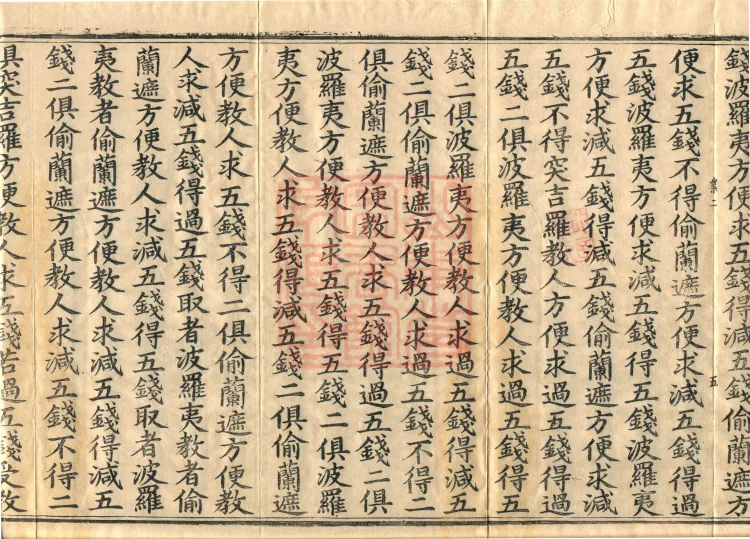 錢波羅夷方便求五錢得減五錢偷蘭遮方
便求五錢不得偷蘭遮方便求減五錢得過
五錢波羅夷方便求減五錢得五錢波羅夷
方便求減五錢得減五錢偷蘭遮方便求減
五錢不得突吉羅教人方便求過五錢得過
五錢二俱波羅夷方便教人求過五錢得五
錢二俱波羅夷方便教人求過五錢得減五
錢二俱偷蘭遮方便教人求過五錢不得二
俱偷蘭遮方便教人求五錢得過五錢二俱
波羅夷方便教人求五錢得五錢二俱波羅
夷方便教人求五錢得減五錢二俱偷蘭遮
方便教人求五錢不得二俱偷蘭遮方便教
人求減五錢得過五錢取者波羅夷教者偷
蘭遮方便教人求減五錢得五錢取者波羅
夷教者偷蘭遮方便教人求減五錢得減五
錢二俱偷蘭遮方便教人求減五錢不得二
俱突吉羅方便教人求五錢若過五錢受教